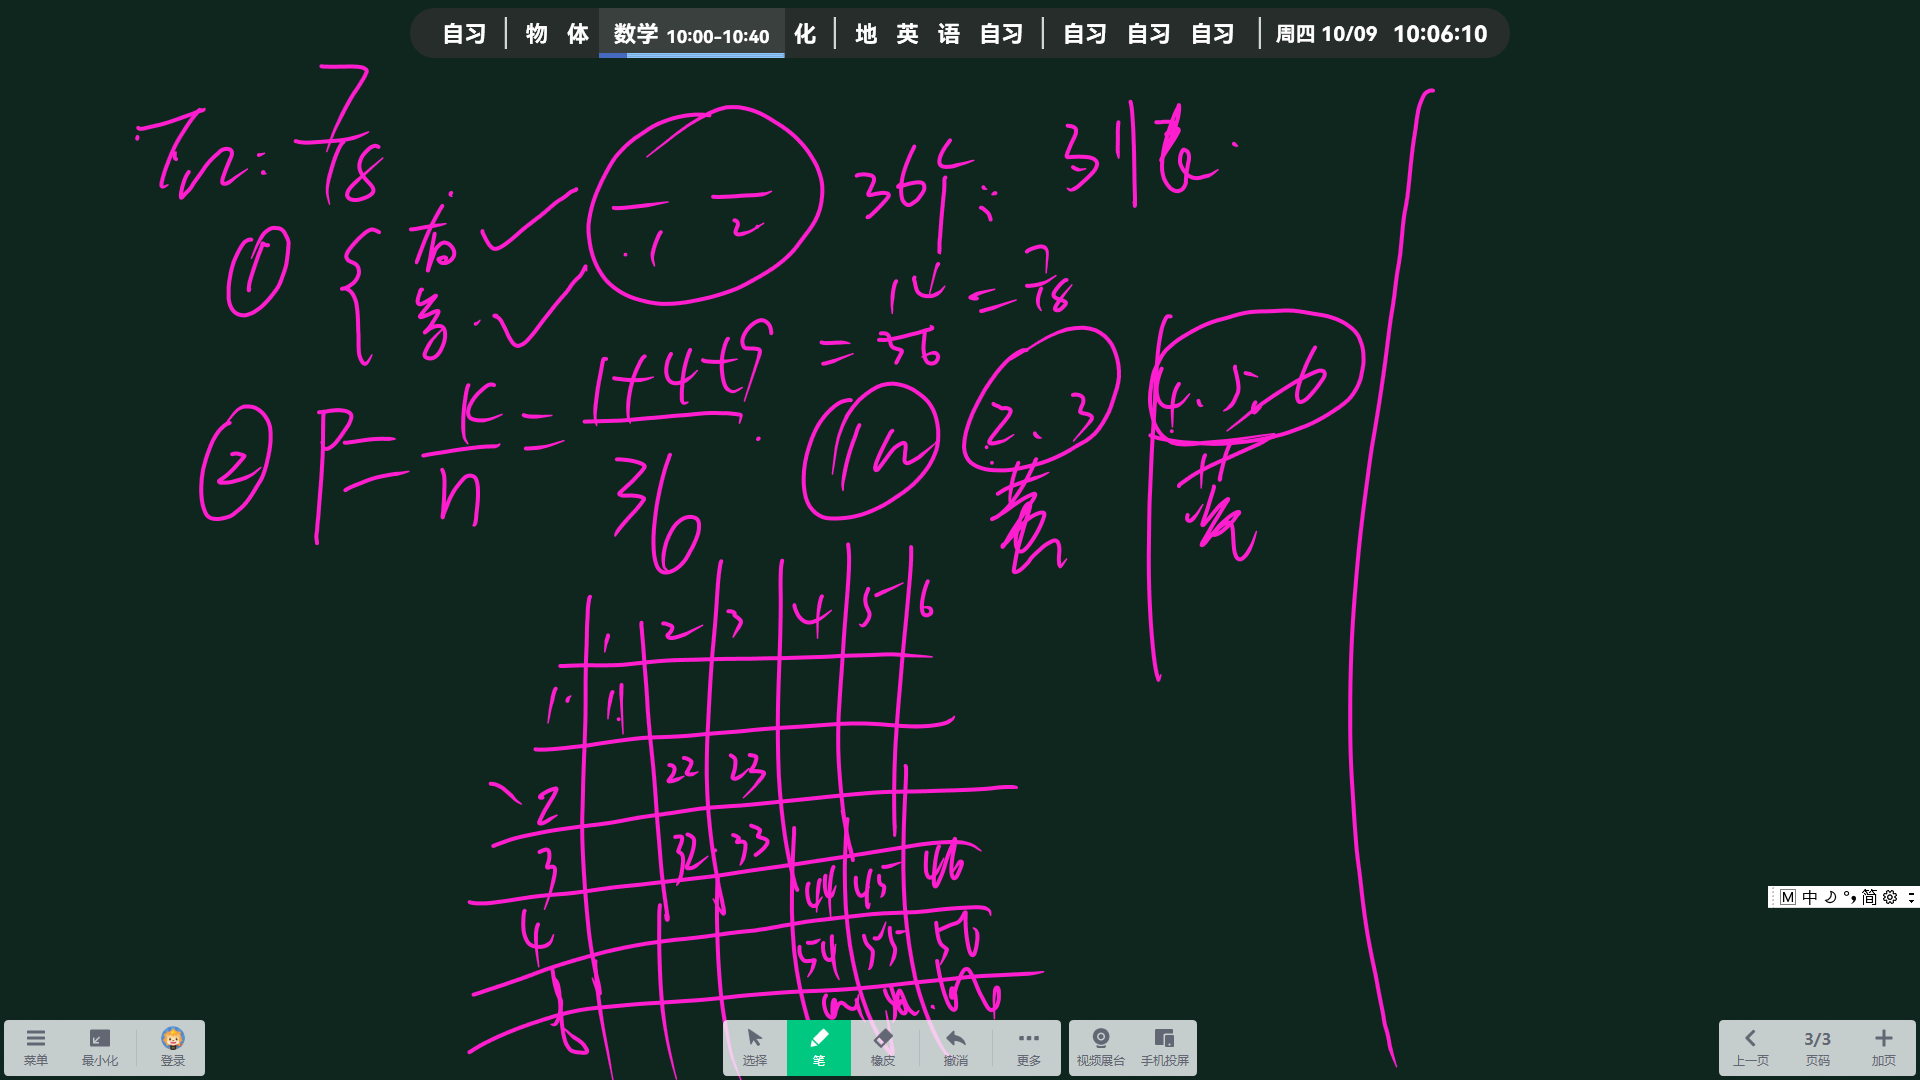 自习 物 体 数学 10:00-10:40 化 地 英 语 自习 自习 自习 自习 周四 10/09 10:06:10
7/18
① 有 1 2 36个: 列表.
② P = K/n = 1+4+9/36 = 14/36 = 7/18
2. 3 4. 5. 6
黄
1 2 3 4 5 6
1. 11
2 22 23
3 32 33
4 44 45 46
54 55 56
6
M 中 简
菜单 最小化 登录 选择 笔 橡皮 撤消 更多 视频展台 手机投屏 上一页 3/3 页码 加页